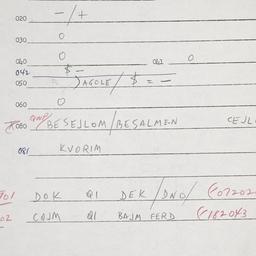 020 -/+
030 0
040 0 041 0
042 $ -
050 JAGOLE/ $ = -
060 0
080 BESEJLOM/BESALMEN CEJL
081 KVORIM
701 DOK QI DEK/DNO/ (07202
02 COJM QI BAJM FERD (182043